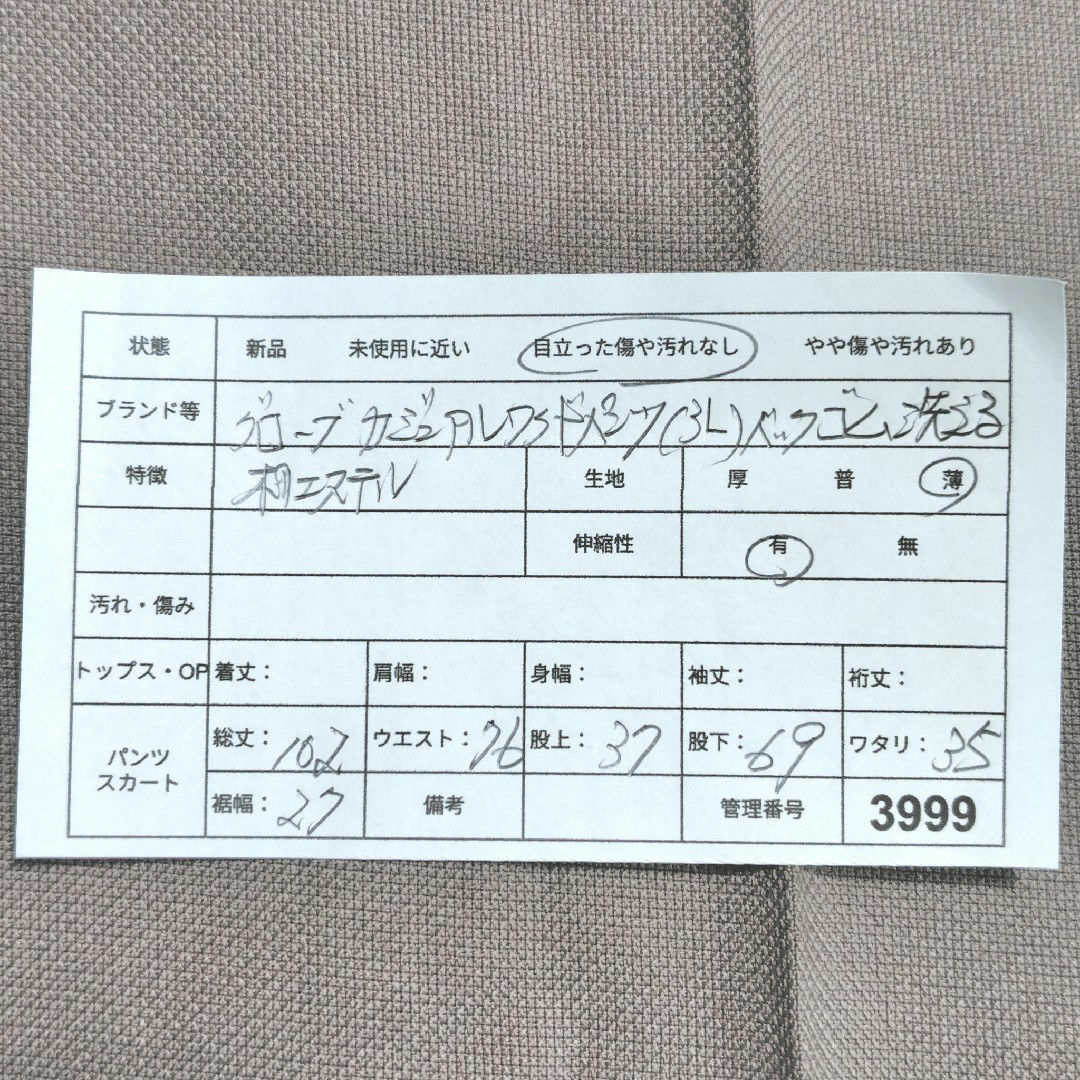 状態 新品 未使用に近い 目立った傷や汚れなし やや傷や汚れあり
ブランド等 グローブ カジュアルワイドパンツ(3L)バックゴム、洗える
特徴 ポリエステル 生地 厚 普 薄
伸縮性 有 無
汚れ・傷み
トップス・OP 着丈: 肩幅: 身幅: 袖丈: 裄丈:
パンツ スカート 総丈:102 ウエスト:76 股上:37 股下:69 ワタリ:35
裾幅:27 備考 管理番号 3999